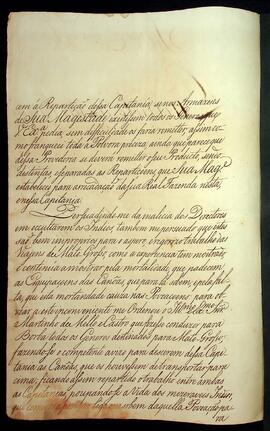 cam à Repartição dessa Capitania, se nos Armazens
de Sua Magestade existissem todos os Generos que
V. Ex.ª pedia, sem difficuldade os faria remetter, assim co
mo franqueei toda a Polvora preciza, ainda que parece que
dessa Provedoria se devem remetter o seu Producto, se não
distinctas, e separadas as Repartiçoens que Sua Mag.e
estabeleceo para arrecadação da sua Real Fazenda nesta,
e nessa Capitania.
Persuadindo-me da malicia dos Directores
em occultarem os Indios, tambem me persuado que estes
são bem improprios para o aspero, e rigorozo trabalho das
Viagens de Mato Grosso, como a experiencia tem mostrado,
e continúa a mostrar pela mortalidade que padecem
as Equipagens das Canôas que para lá sobem, e pela falta,
que esta mortandade cauza nas Povoaçoens; para ob
viar a este inconveniente me Ordenou o Ill.mo Ex.mo Snr.
Martinho de Mello e Castro que fizesse conduzir para
Borba todos os Generos destinados para Mato Grosso,
fazendo-se o competente avizo para descerem dessa Capi
tania as Canôas, que os houvessem de transportar para
cima; ficando assim repartido o trabalho entre ambas
as Capitanias, poupando-se a Vida dos mizeraveis Indios,
que bem daquella Povoação pa
ra